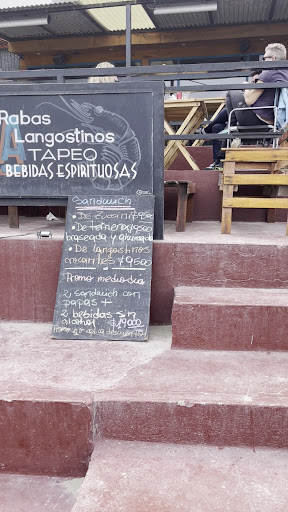 Rabas
Langostinos
TAPEO
BEBIDAS ESPIRITUOSAS
Sandwich
De
$9500
De ternera
braseada y ahumada
De langostinos
crocantes $9500
Promo mediodia
2 sandwich con
papas +
2 bebidas sin
alcohol $19000
Promo